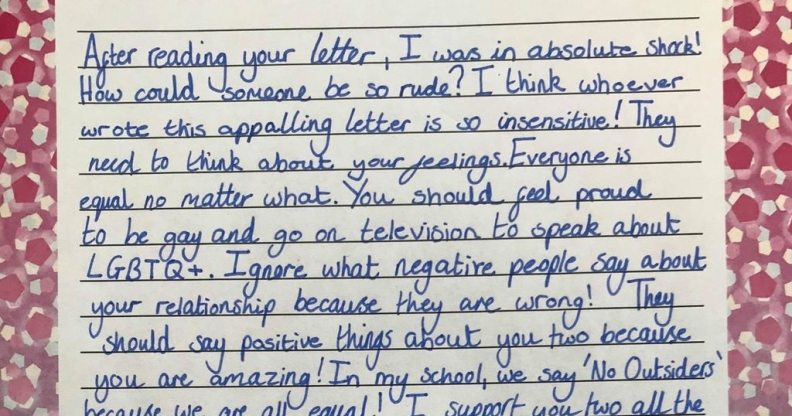 After reading your letter, I was in absolute shock!
How could someone be so rude? I think whoever
wrote this appalling letter is so insensitive! They
need to think about your feelings. Everyone is
equal no matter what. You should feel proud
to be gay and go on television to speak about
LGBTQ+. Ignore what negative people say about
your relationship because they are wrong! They
should say positive things about you two because
you are amazing! In my school, we say 'No Outsiders'
because we are all equal! I support you two all the